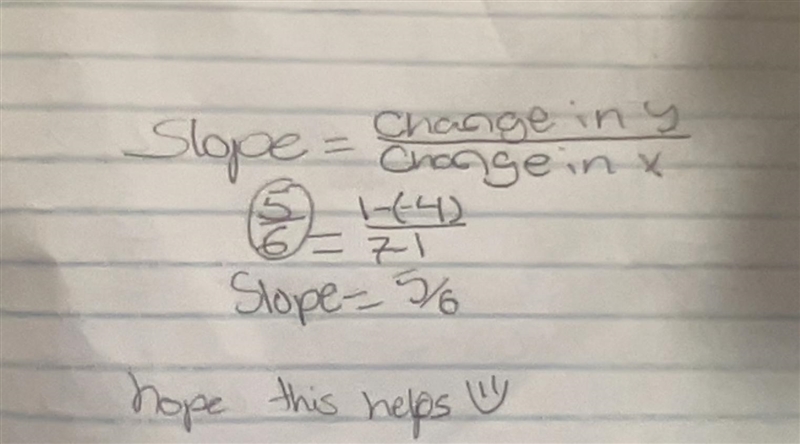 Slope = change in y / change in x
5/6 = 1-(-4) / 7-1
Slope = 5/6
hope this helps